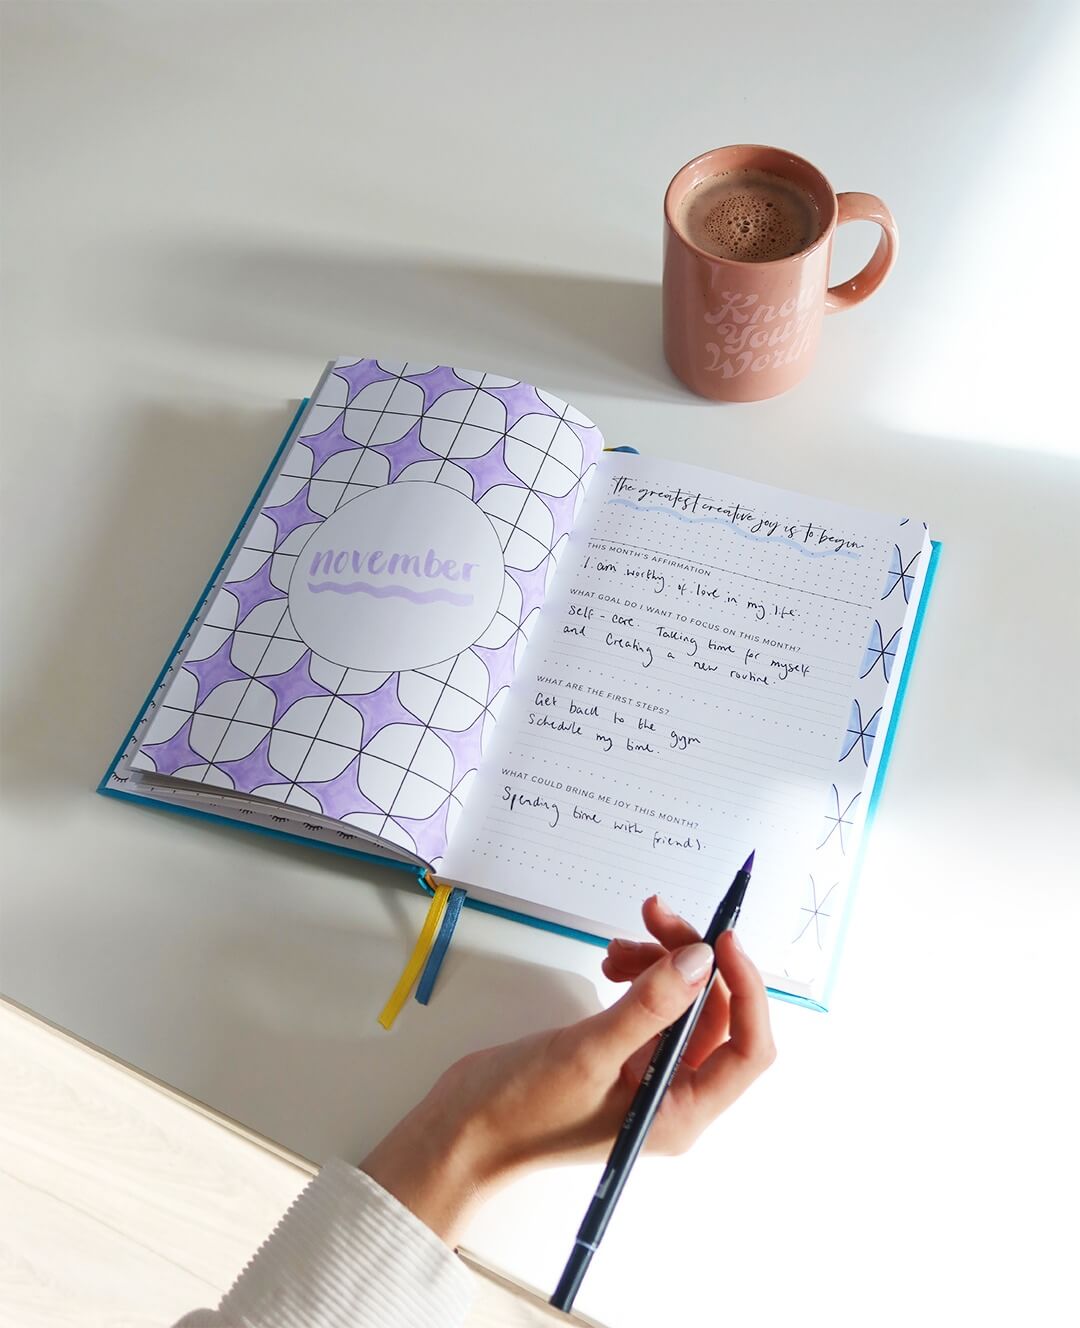 Know
Your
Worth
november
the greatest creative joy is to begin
THIS MONTH'S AFFIRMATION
I am worthy of love in my life.
WHAT GOAL DO I WANT TO FOCUS ON THIS MONTH?
Self-care. Taking time for myself
and Creating a new routine.
WHAT ARE THE FIRST STEPS?
Get back to the gym
Schedule my time.
WHAT COULD BRING ME JOY THIS MONTH?
Spending time with friends.